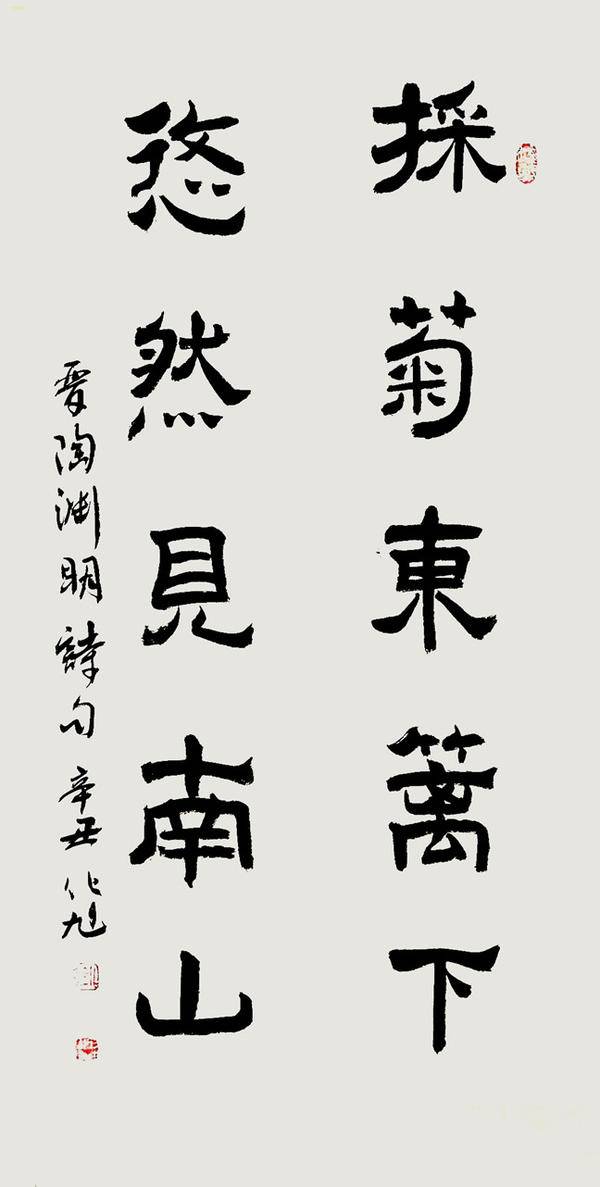 採菊東篱下
悠然見南山
晋陶渊明詩句 辛丑 化旭